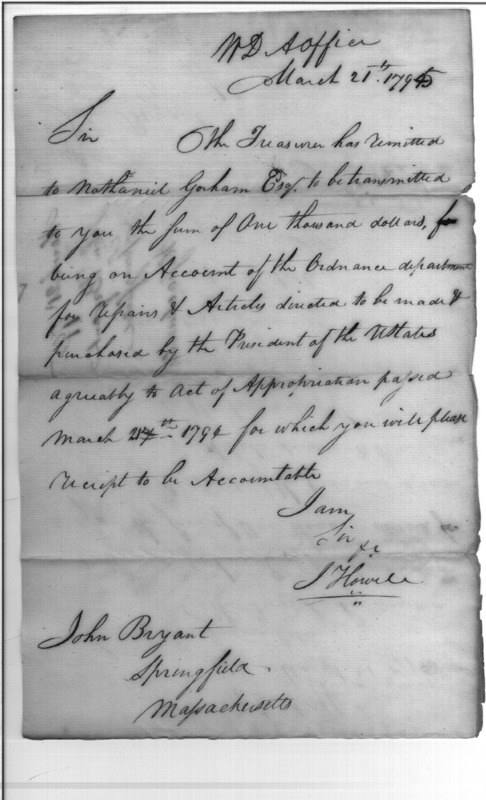 W D A Office
March 21th. 1795
Sir The Treasurer has remitted
to Nathaniel Gorham Esqr. to be transmitted
to you the Sum of One thousand dollars, for
being on Account of the Ordnance department
for repairs & Articles directed to be made &
purchased by the President of the UStates
agreeably to Act of Appropriation passed
March th 1794 for which you will please
receipt to be Accountable
I am
Sir
&c
J Howell
John Bryant
Springfield
Massachusetts